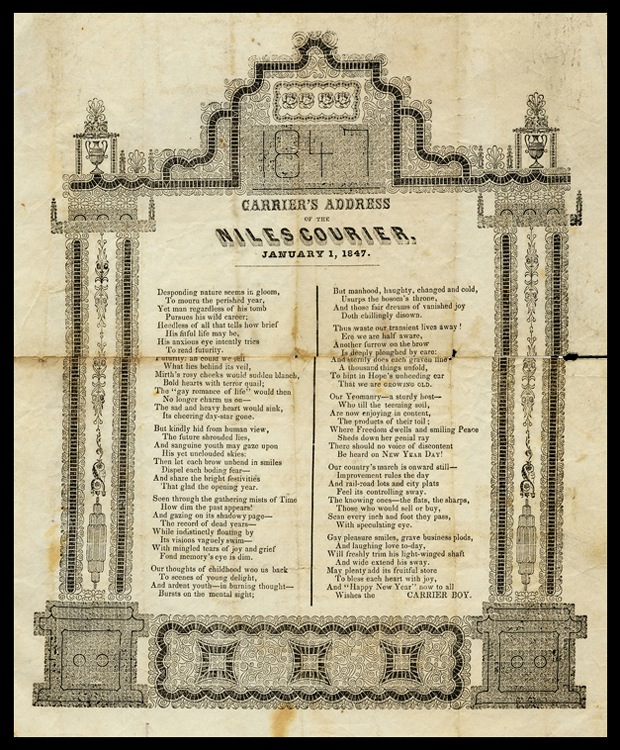 1847
CARRIER'S ADDRESS
OF THE
NILES COURIER,
JANUARY 1, 1847.
Desponding nature seems in gloom,
To mourn the perished year,
Yet man regardless of his tomb
Pursues his wild career;
Heedless of all that tells how brief
His fitful life may be,
His anxious eye intently tries
To read futurity.
Futurity! ah could we tell
What lies behind its veil,
Mirth's rosy cheeks would sudden blanch,
Bold hearts with terror quail;
The "gay romance of life" would then
No longer charm us on—
The sad and heavy heart would sink,
Its cheering day-star gone.
But kindly hid from human view,
The future shrouded lies,
And sanguine youth may gaze upon
His yet unclouded skies:
Then let each brow unbend in smiles
Dispel each boding fear—
And share the bright festivities
That glad the opening year.
Seen through the gathering mists of Time
How dim the past appears!
And gazing on its shadowy page—
The record of dead years—
While indistinctly floating by
Its visions vaguely swim—
With mingled tears of joy and grief
Fond memory's eye is dim.
Our thoughts of childhood woo us back
To scenes of young delight,
And ardent youth—in burning thought—
Bursts on the mental sight;
But manhood, haughty, changed and cold,
Usurps the bosom's throne,
And those fair dreams of vanished joy
Doth chillingly disown.
Thus waste our transient lives away!
Ere we are half aware,
Another furrow on the brow
Is deeply ploughed by care:
And sternly does each graven line
A thousand things unfold,
To hint in Hope's unheeding ear
That we are GROWING OLD.
Our Yeomanry—a sturdy host—
Who till the teeming soil,
Are now enjoying in content,
The products of their toil;
Where Freedom dwells and smiling Peace
Sheds down her genial ray
There should no voice of discontent
Be heard on NEW YEAR DAY!
Our country's march is onward still—
Improvement rules the day
And rail-road lots and city plats
Feel its controlling sway.
The knowing ones—the flats, the sharps,
Those who would sell or buy,
Scan every inch and foot they pass,
With speculating eye.
Gay pleasure smiles, grave business plods,
And laughing love to-day,
Will freshly trim his light-winged shaft
And wide extend his sway.
May plenty add its fruitful store
To bless each heart with joy,
And "Happy New Year" now to all
Wishes the CARRIER BOY.